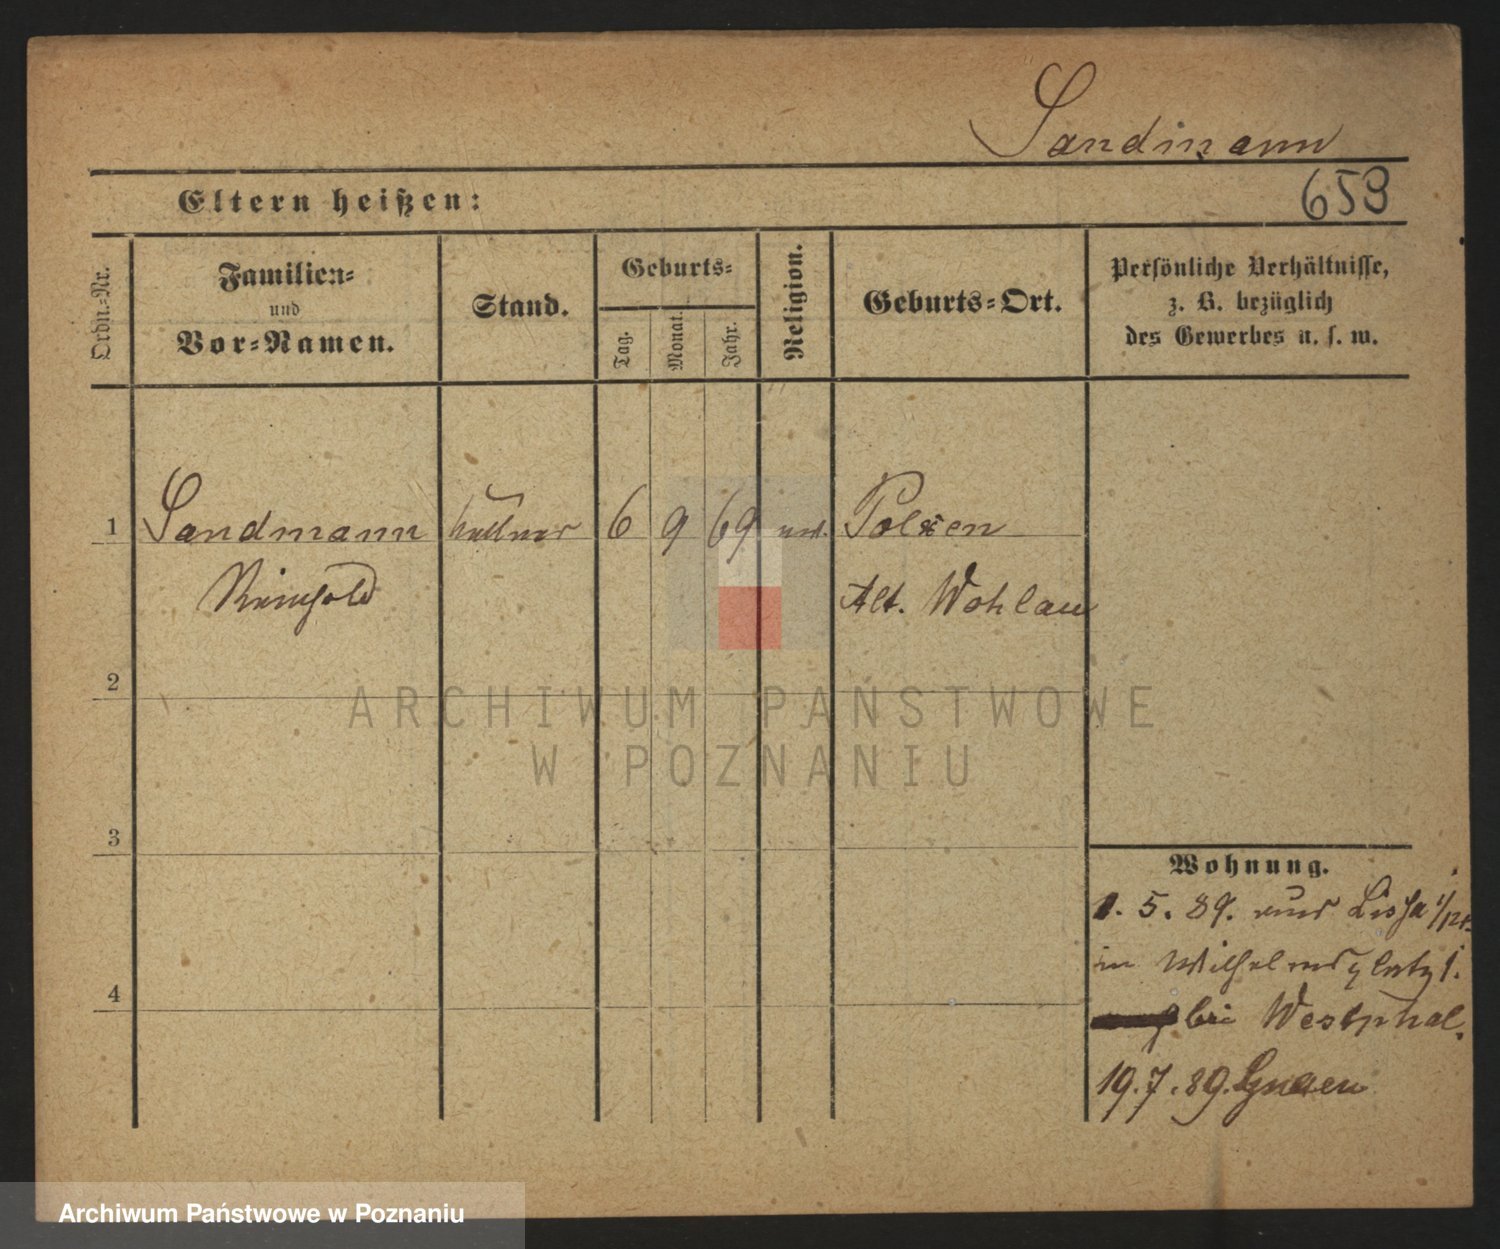 Sandmann
Eltern heißen:
653
Ordn.-Nr.
Familien-
und
Vor-Namen.
Stand.
Geburts-
Tag.
Monat.
Jahr.
Religion.
Geburts-Ort.
Persönliche Verhältnisse,
z. B. bezüglich
des Gewerbes u. s. w.
1 Sandmann Kellner 6 9 69 Polxen
Reinhold Alt. Wohlau
2
3
4
Wohnung.
1. 5. 89. Lissa
in Wilhelmsplatz 1.
bei Westphal.
19. 7. 89. Gnesen
ARCHIWUM PAŃSTWOWE
W POZNANIU
Archiwum Państwowe w Poznaniu